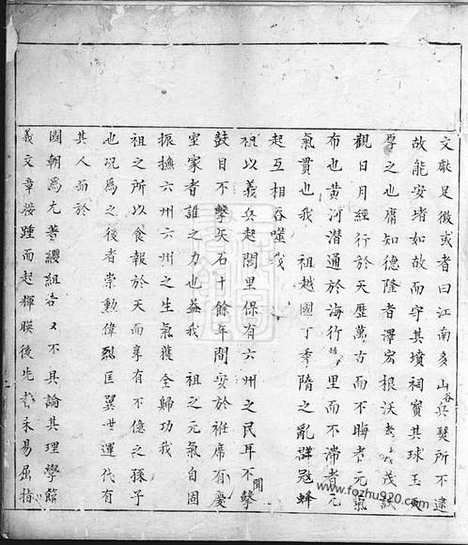 文獻足徵或者曰江南多山谷兵燹所不逮
故能安堵如故而守其墳祠寶其球玉
厚之也庸知德隆者澤宏根沃者茂
觀日月經行於天歷萬古而不晦者元氣
布也黄河潛通於海行里而不滯者元
氣貫也我 祖越國丁季隋之亂群冦蜂
起互相吞噬我
祖以義兵起閭里保有六州之民耳不聞
鼓目不擊矢石十餘年間安於袵席有慶
室家者誰之力也益我 祖之元氣自固
振撫六州六州之生氣獲全歸功我
祖之所以食報於天而享有不億之孫子
也况為之後者崇勳偉烈匡翼世運代有
其人而於
國朝為尤著纓組者又不具論其理學節
義文章接踵而起輝暎後先未易屈指
www.fozhu920.com